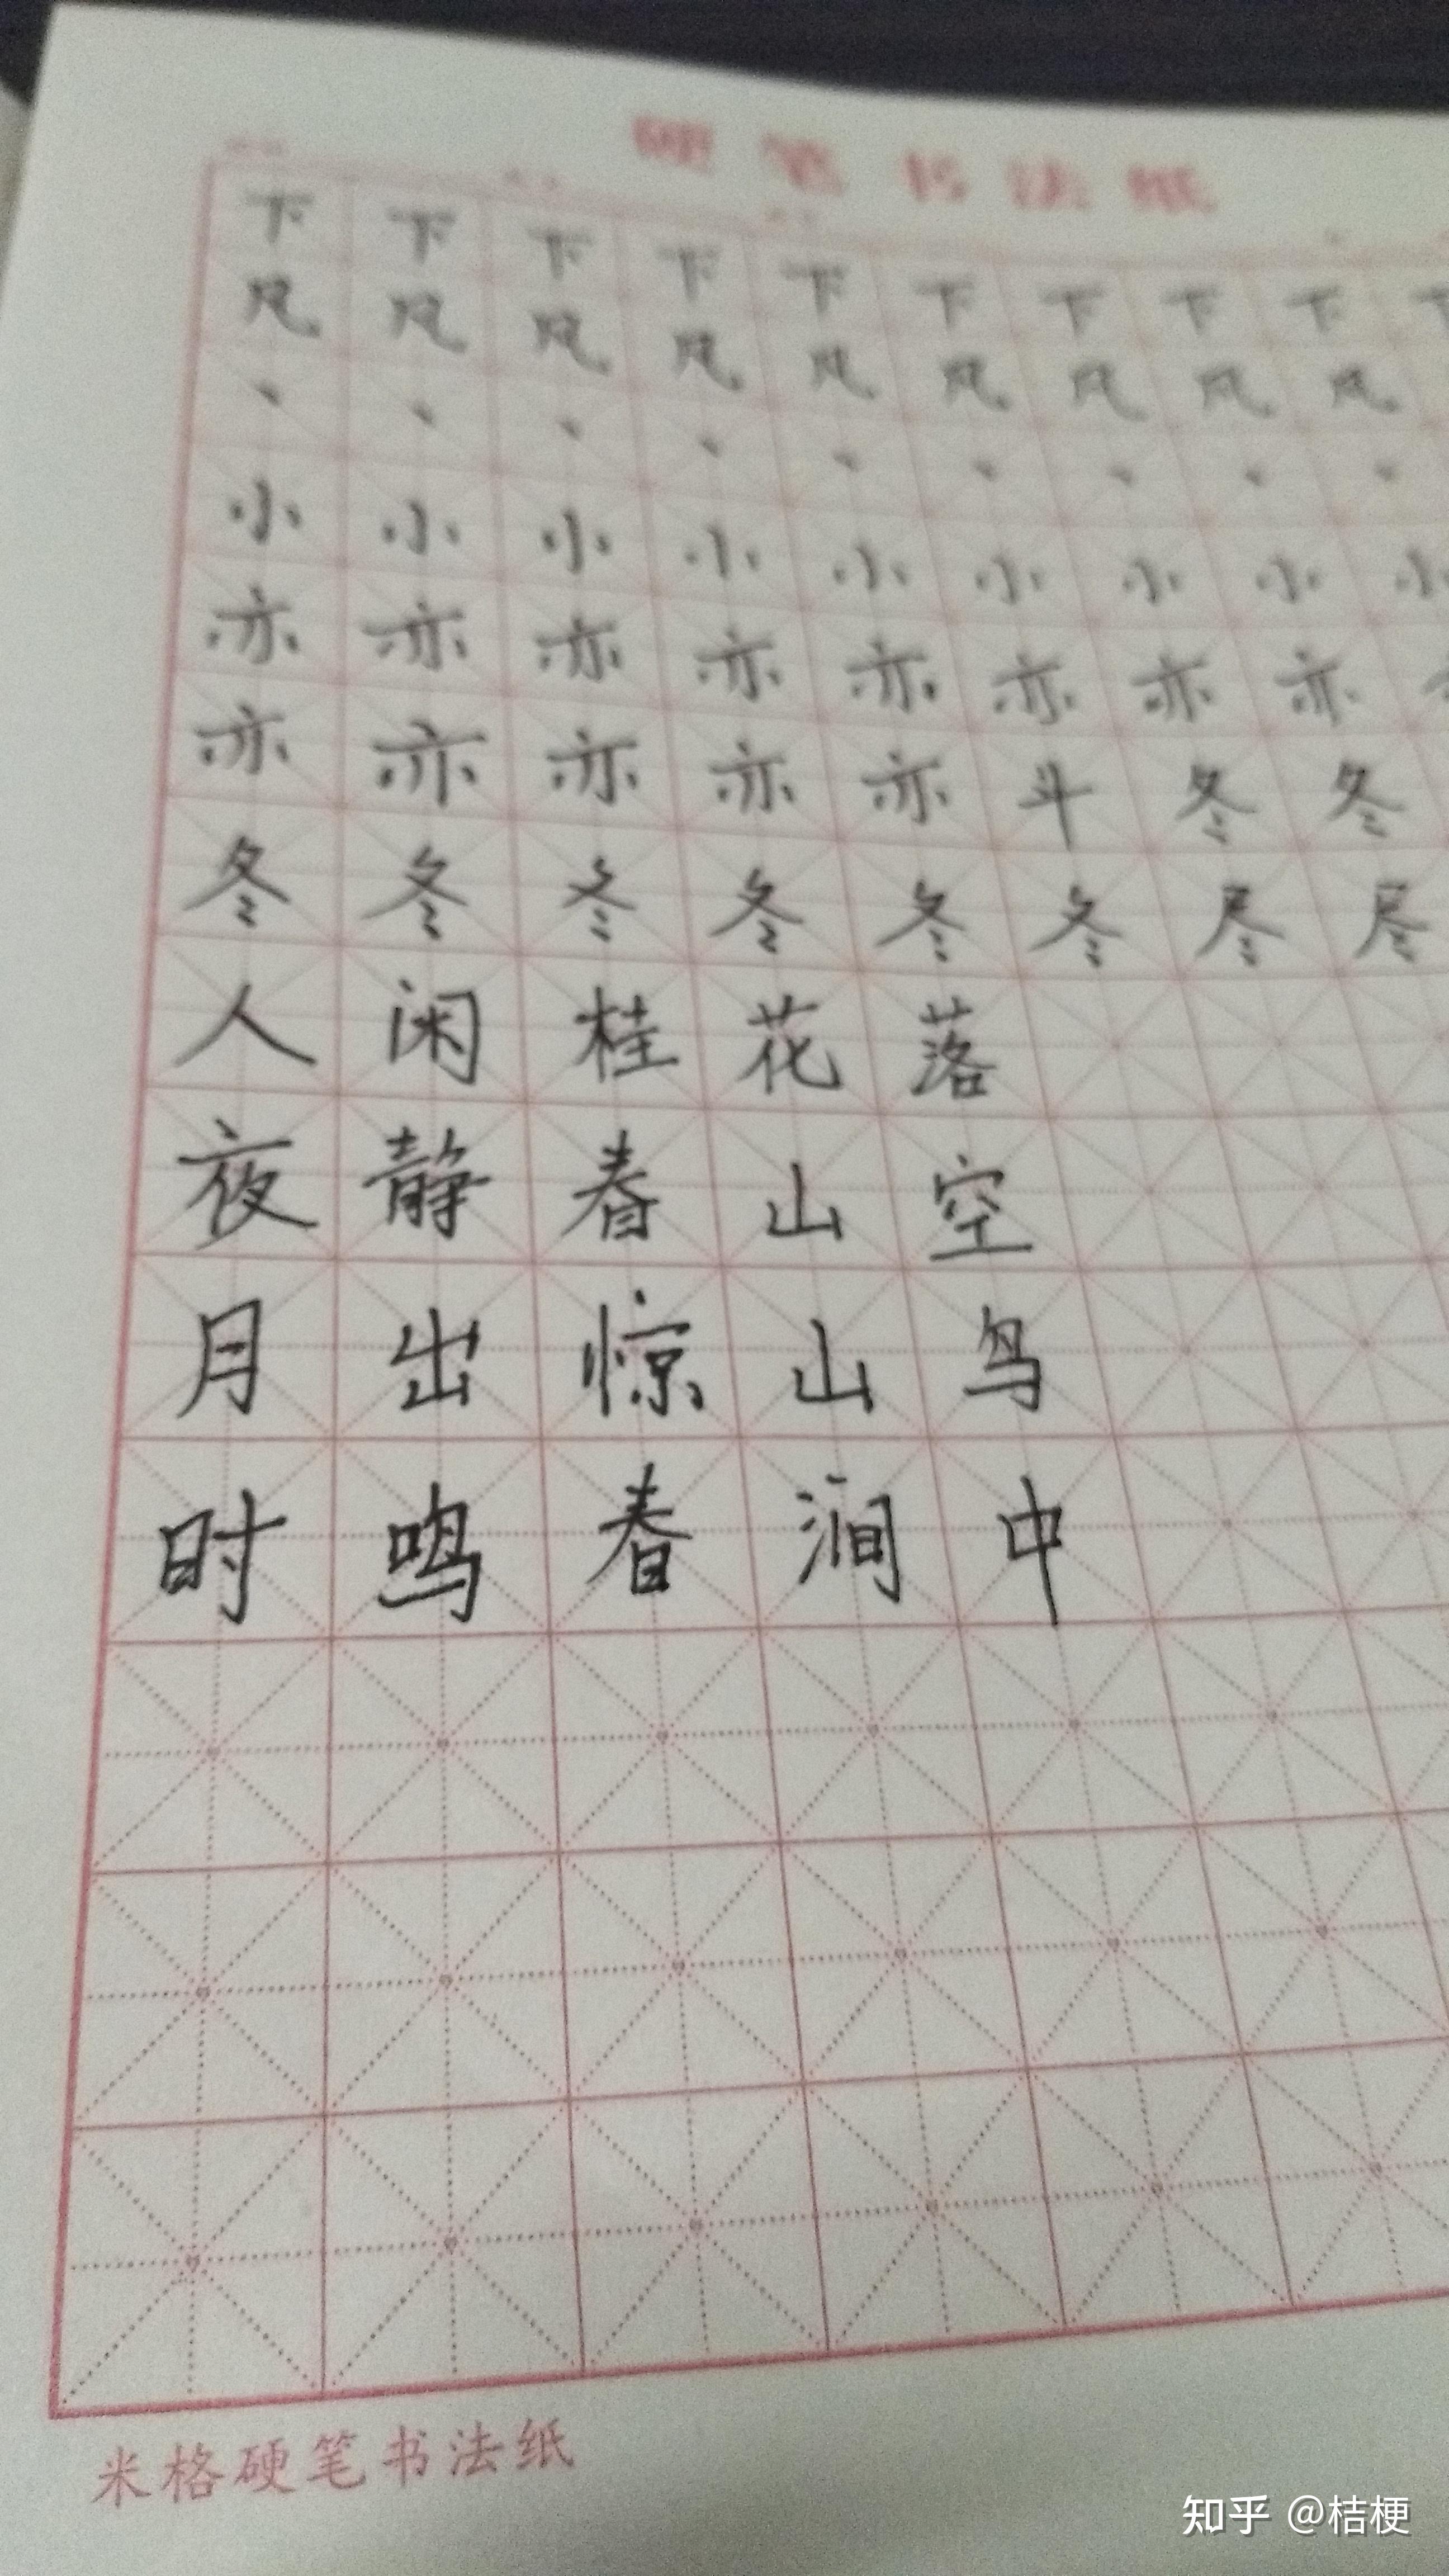 硬笔书法纸
下下下下下下下下下
风风风风风风风风风
丶丶丶丶丶丶丶丶丶
小小小小小小小小小
亦亦亦亦亦亦亦亦
亦亦亦亦亦斗冬冬
冬冬冬冬冬冬尽尽
人闲桂花落
夜静春山空
月出惊山鸟
时鸣春涧中
米格硬笔书法纸
知乎 @桔梗